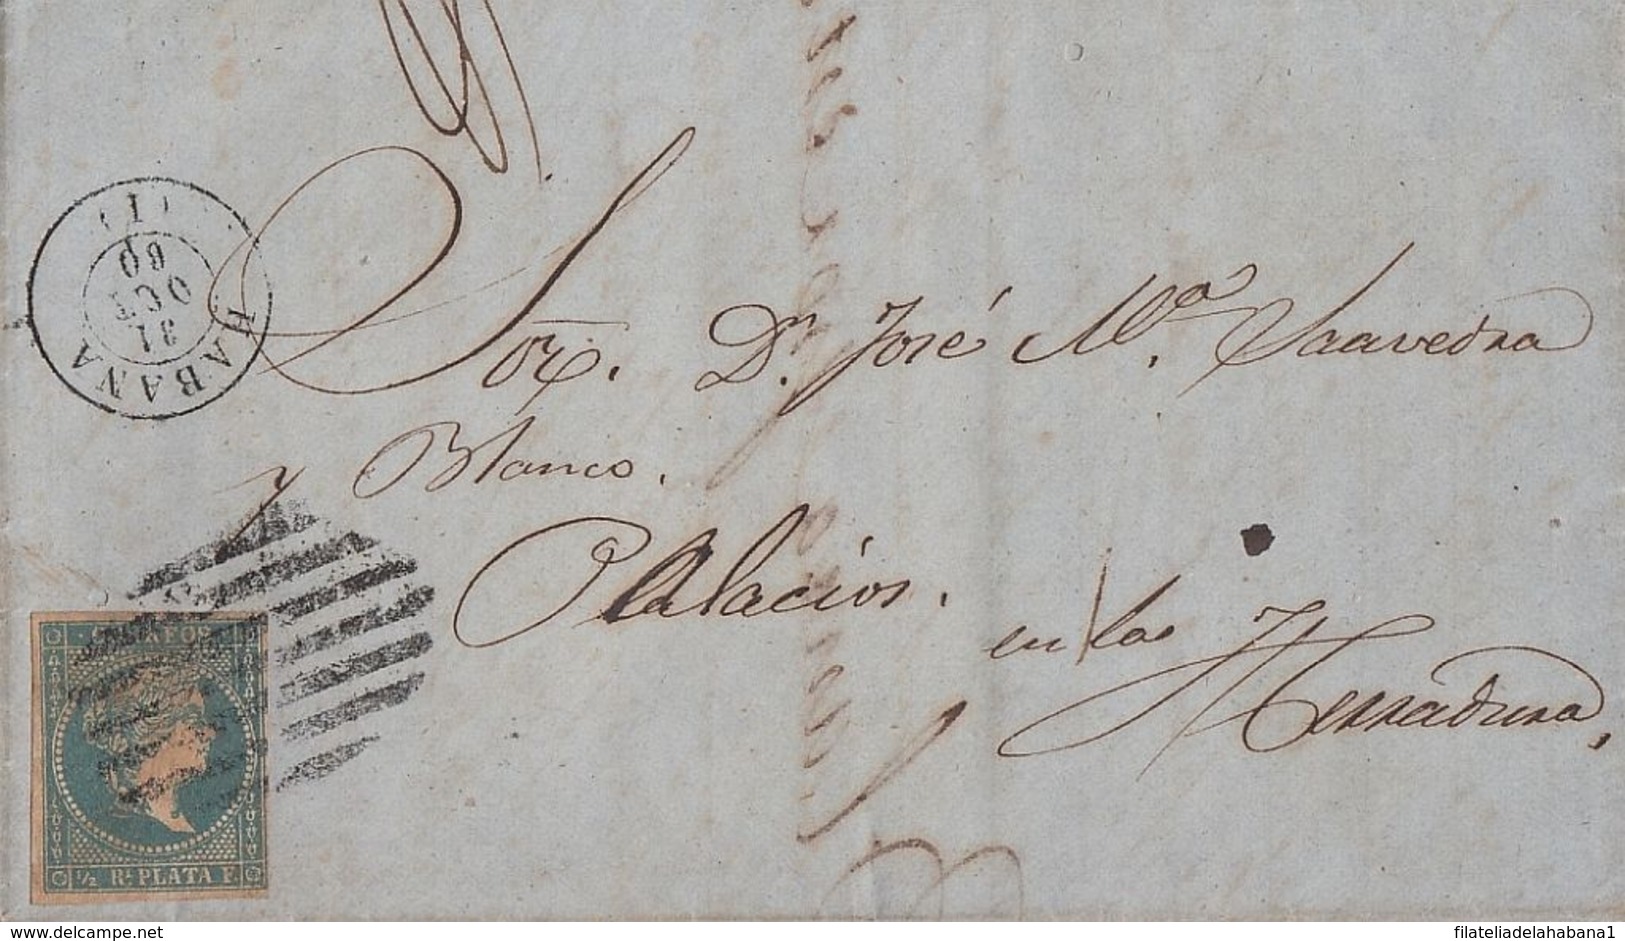 HABANA
(1)
31
OCT
60
Sor. Dn. José Ma. Saavedra
y Blanco.
Palacios.
en las
Herradura,
CORREOS
½ Rl. PLATA F.
www.delcampe.net
filateliadelahabana1